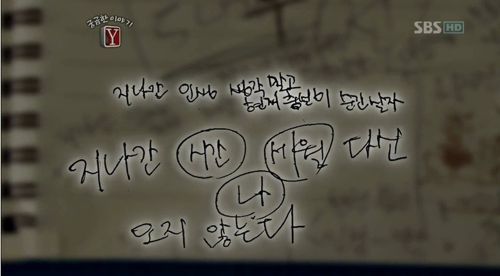 궁금한 이야기
Y
SBS HD
지나간 인생 생각 말고
현재 충분이
지나간 시간 세월 다신
나
오지 않는다